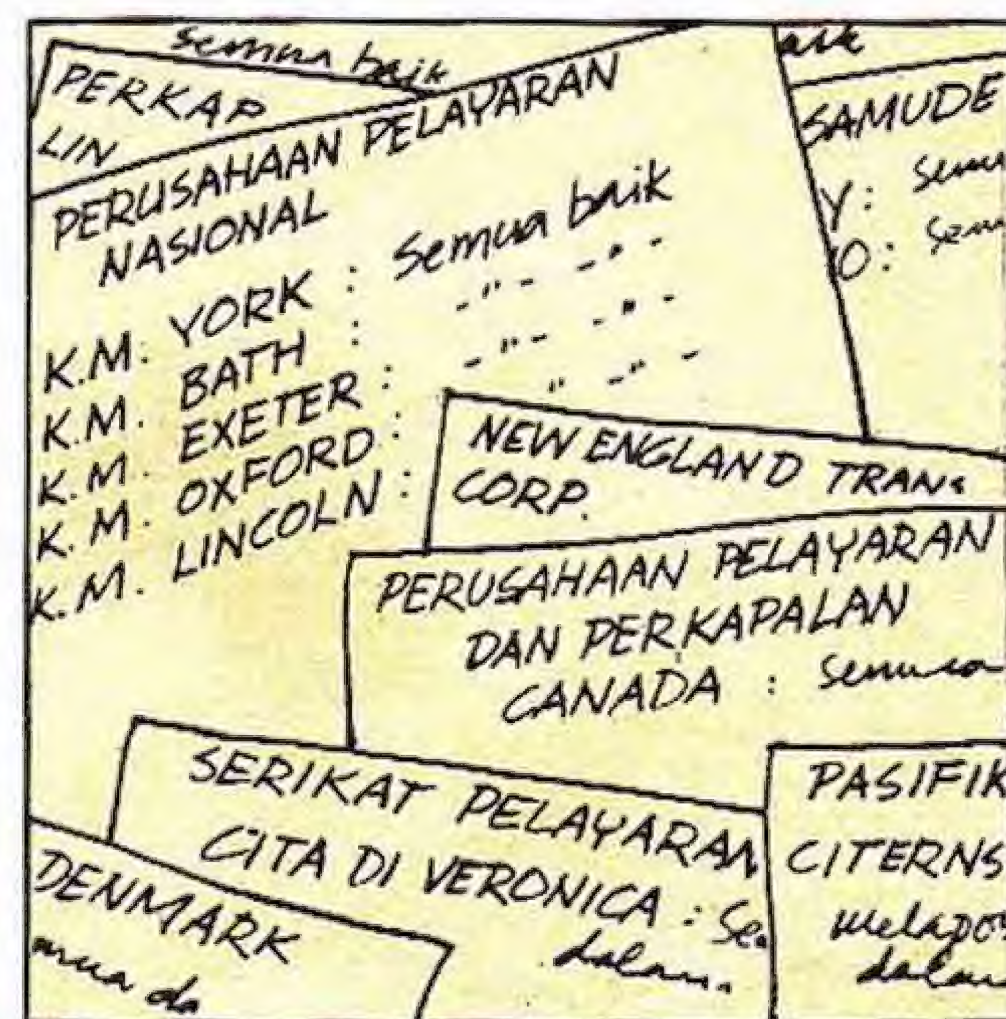 semua baik
PERKAP
LIN
PERUSAHAAN PELAYARAN
NASIONAL
K.M. YORK : semua baik
K.M. BATH : -"- -"-
K.M. EXETER : -"- -"-
K.M. OXFORD : " -"-
K.M. LINCOLN :
SAMUDE
Y:
O:
NEW ENGLAND TRANS
CORP.
PERUSAHAAN PELAYARAN
DAN PERKAPALAN
CANADA : semua
SERIKAT PELAYARAN
CITA DI VERONICA : Se
dalam
PASIFIK
CITERNS
melapo
dalam
DENMARK
mua da